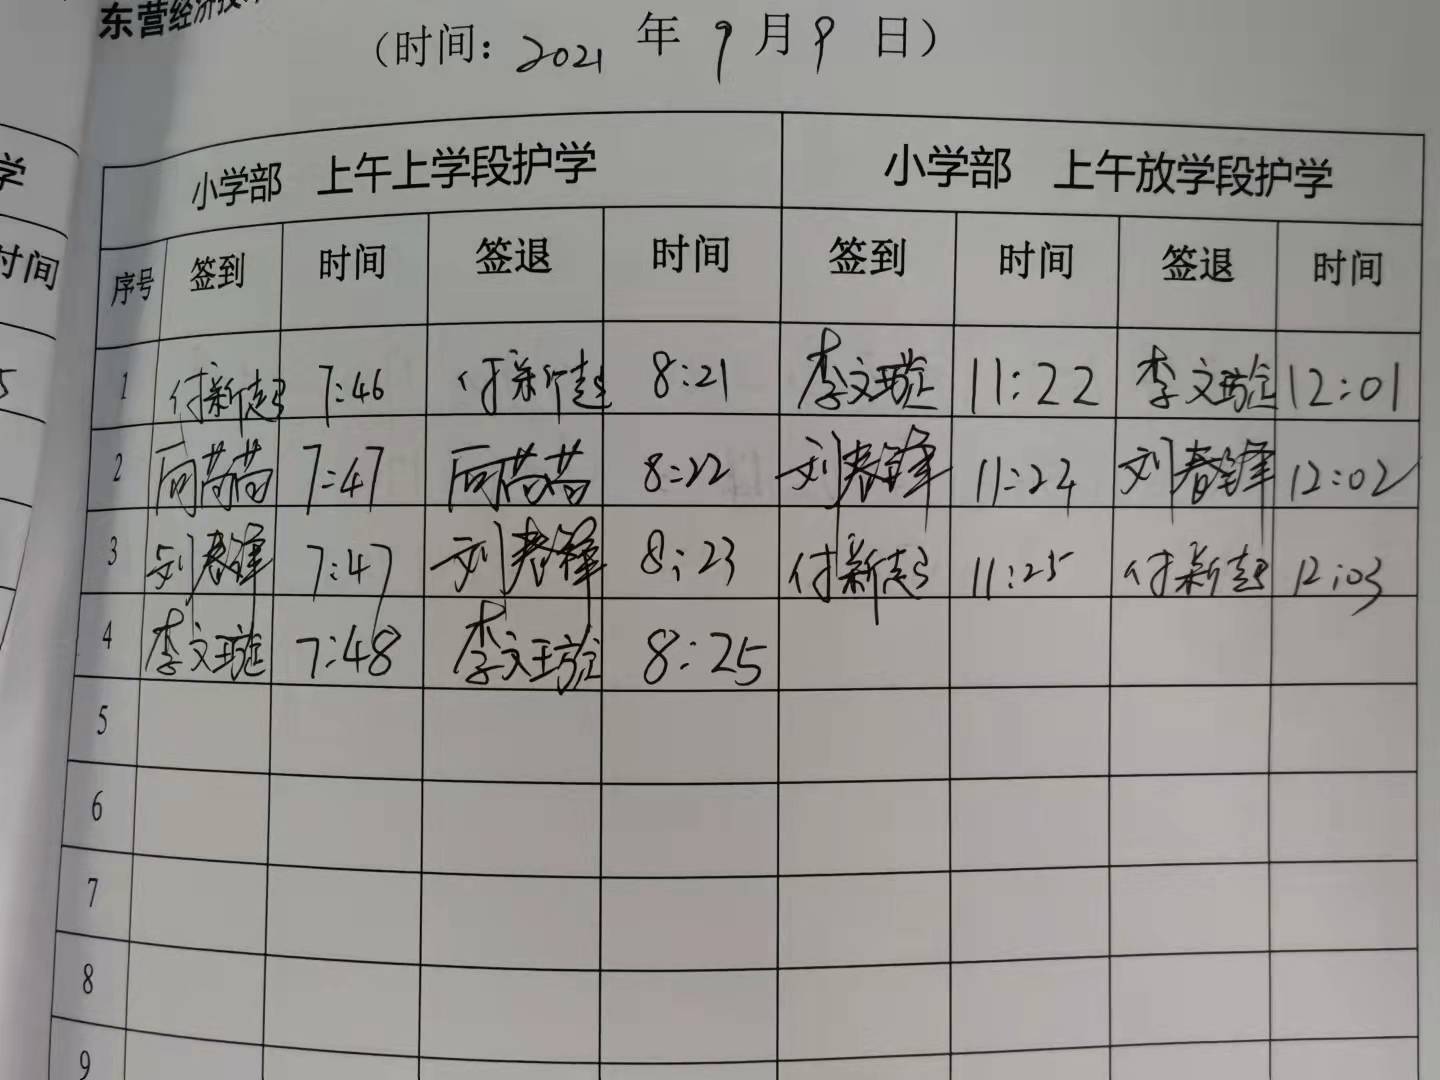 东营经济技
(时间: 2021 年 9 月 9 日)
学 小学部 上午上学段护学 小学部 上午放学段护学
时间 序号 签到 时间 签退 时间 签到 时间 签退 时间
5 1 付新起 7:46 付新起 8:21 李文璇 11:22 李文璇 12:01
2 7:47 8:22 刘春锋 11:24 刘春锋 12:02
3 刘春锋 7:47 刘春锋 8:23 付新起 11:25 付新起 12:03
4 李文璇 7:48 李文璇 8:25
5
6
7
8
9